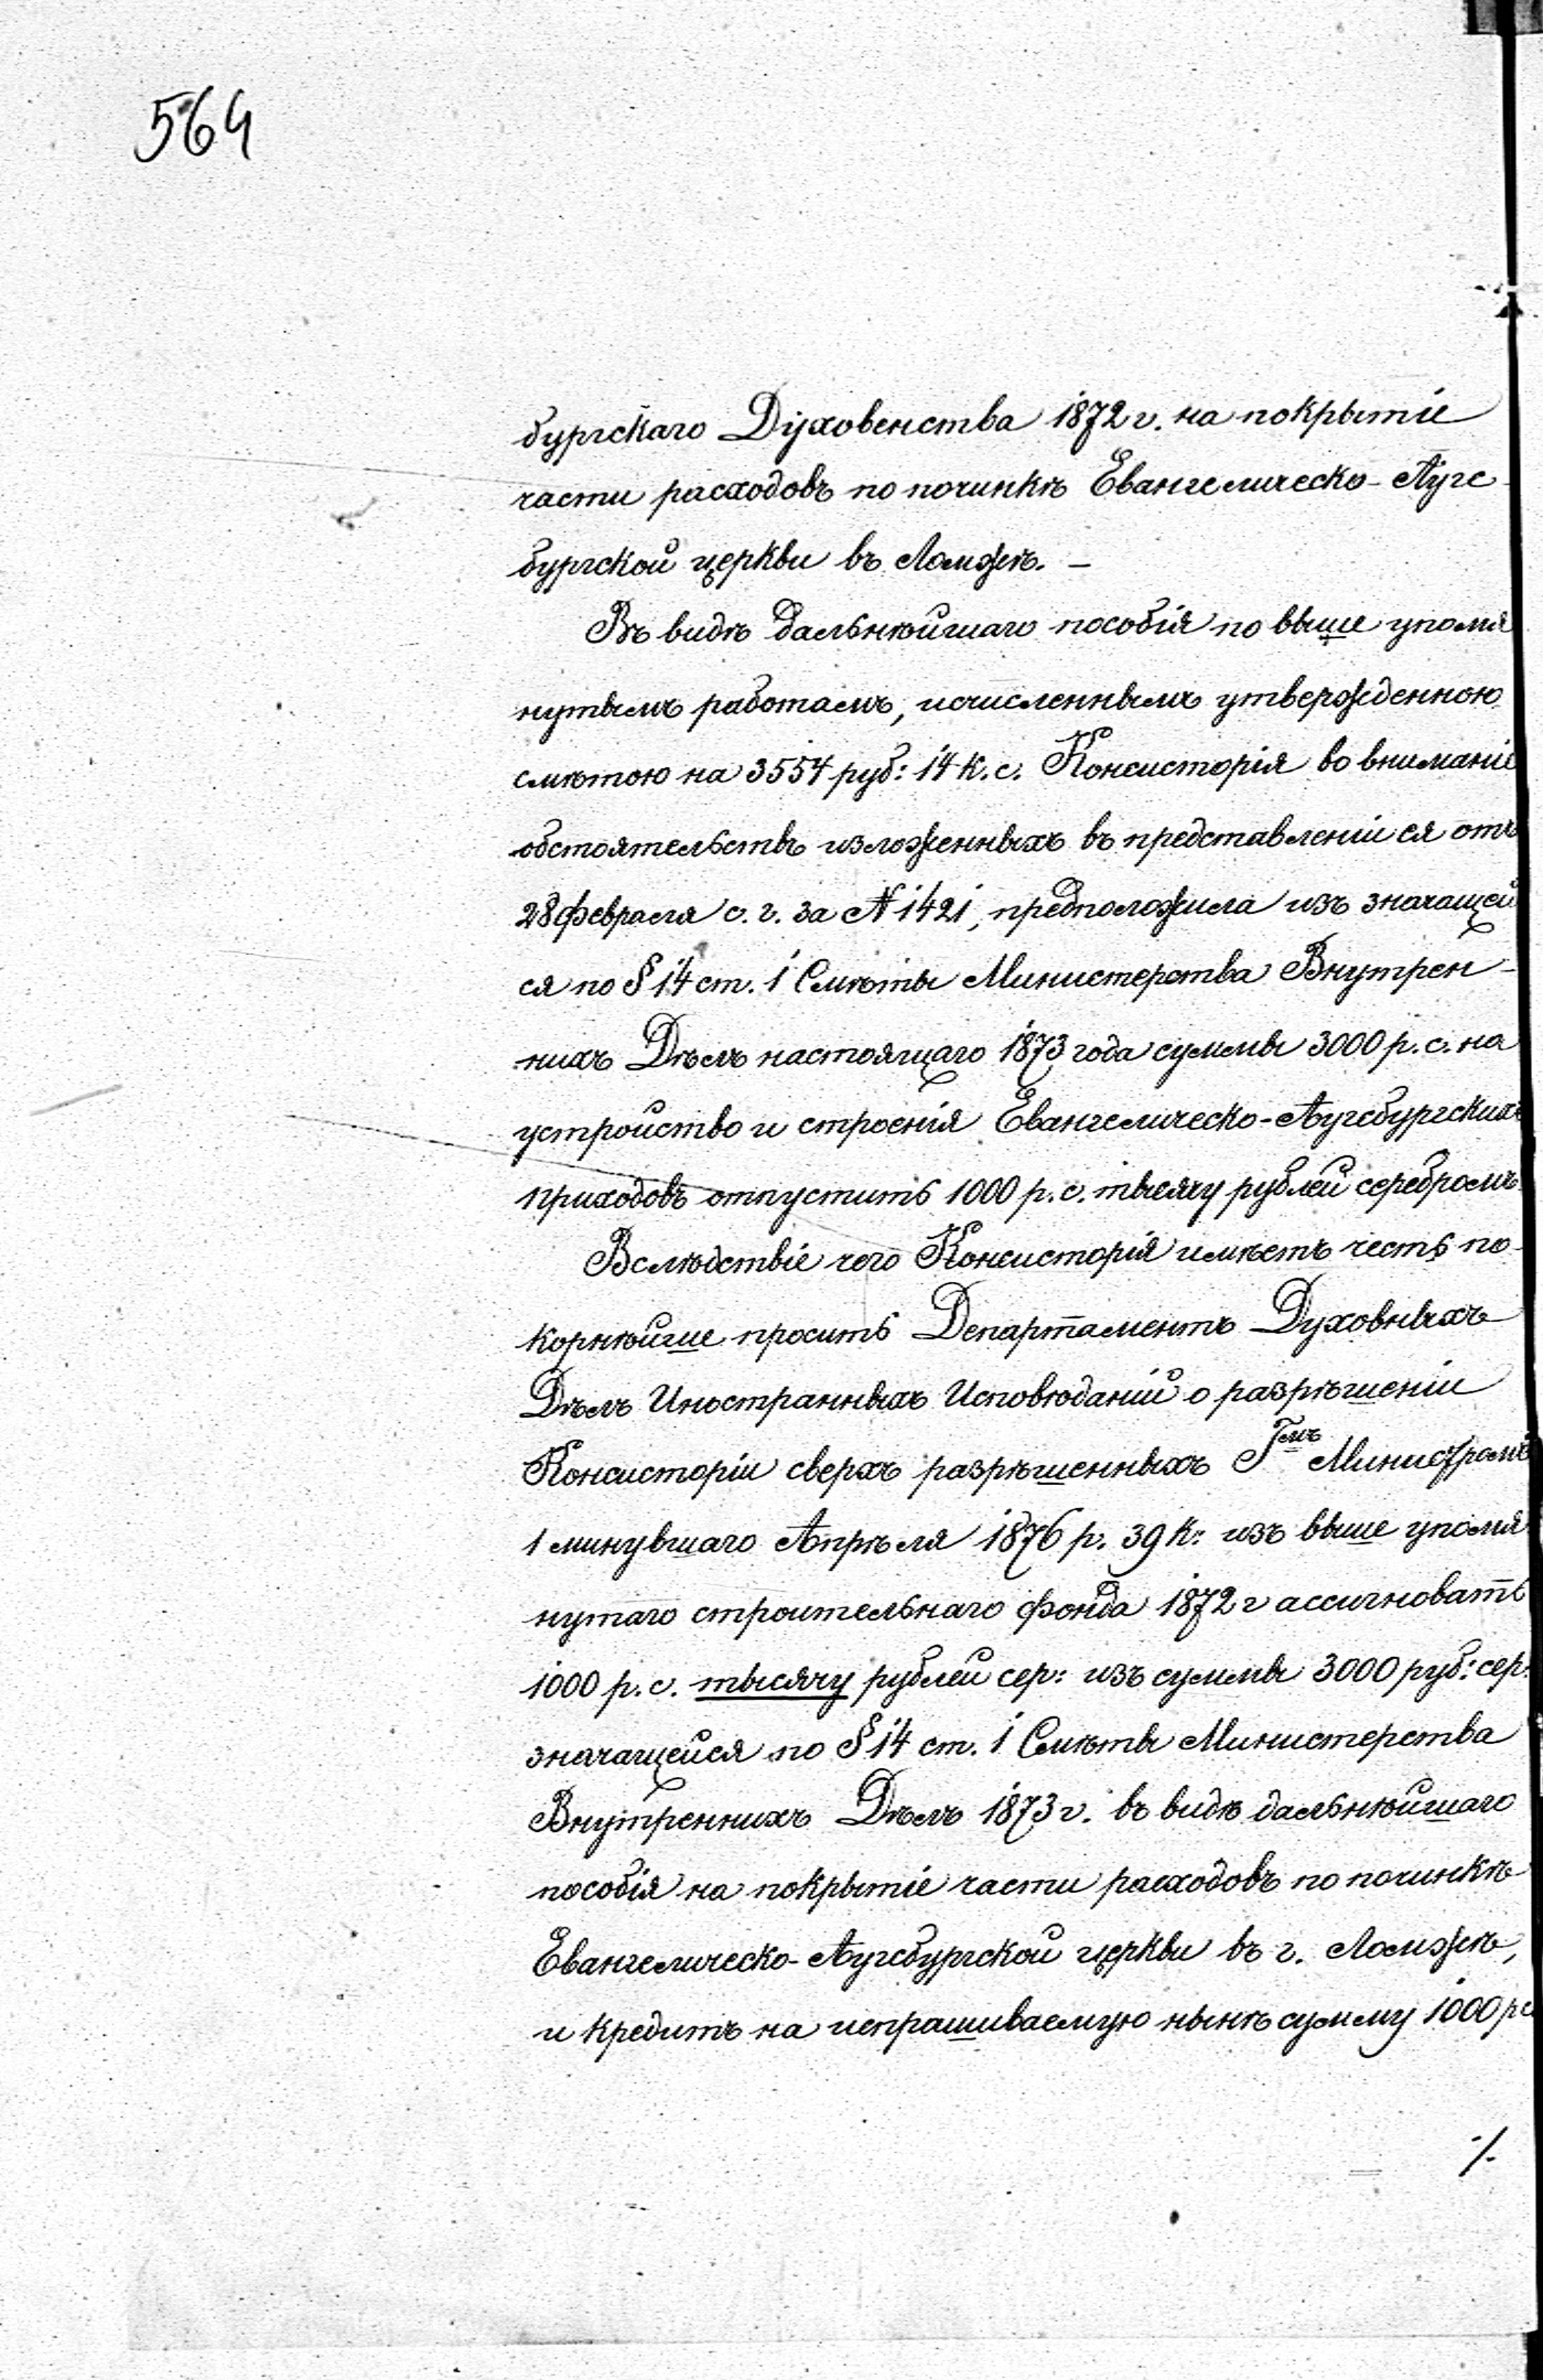 564
бургскаго Духовенства 1872 г. на покрытіе
части расходовъ по починкѣ Евангелическо-Аугс-
бургской церкви въ Ломжѣ. –
Въ видѣ дальнѣйшаго пособія по выше упомя
нутымъ работамъ, исчисленнымъ утвержденною
смѣтою на 3554 руб: 14 к. с. Консисторія во вниманіе
обстоятельствъ изложенныхъ въ представленіи ея отъ
28 Февраля с. г. за № 1421, предположила изъ значащей
ся по § 14 ст. 1 Смѣты Министерства Внутрен-
нихъ Дѣлъ настоящаго 1873 года суммы 3000 р. с. на
устройство и строенія Евангелическо-Аугсбургскихъ
приходовъ отпустить 1000 р. с. тысячу рублей серебромъ.
Вслѣдствіе чего Консисторія имѣетъ честь по-
корнѣйше просить Департаментъ Духовныхъ
Дѣлъ Иностранныхъ Исповѣданій о разрѣшеніи
Консисторіи сверхъ разрѣшенныхъ Гмъ Министромъ
1 минувшаго Апрѣля 1876 р. 39 к: изъ выше упомя
нутаго строительнаго фонда 1872 г ассигновать
1000 р. с. тысячу рублей сер: изъ суммы 3000 руб: сер:
значащейся по § 14 ст. 1 Смѣты Министерства
Внутреннихъ Дѣлъ 1873 г. въ видѣ дальнѣйшаго
пособія на покрытіе части расходовъ по починкѣ
Евангелическо-Аугсбургской церкви въ г. Ломжѣ,
и кредитъ на испрашиваемую нынѣ сумму 1000 рс
·/.